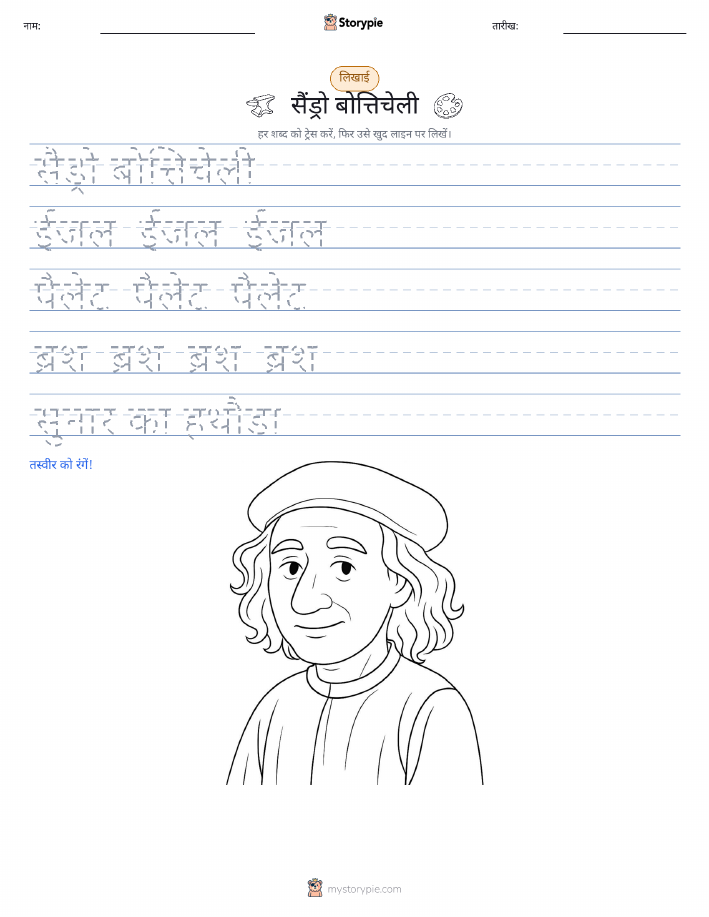 नाम:
Storypie
तारीख:
लिखाई
सैंड्रो बोत्तिचेली
हर शब्द को ट्रेस करें, फिर उसे खुद लाइन पर लिखें।
सैंड्रो बोत्तिचेली
ईजल ईजल ईजल
पैलेट पैलेट पैलेट
ब्रश ब्रश ब्रश ब्रश
सुनार का हथौड़ा
तस्वीर को रंगें!
mystorypie.com